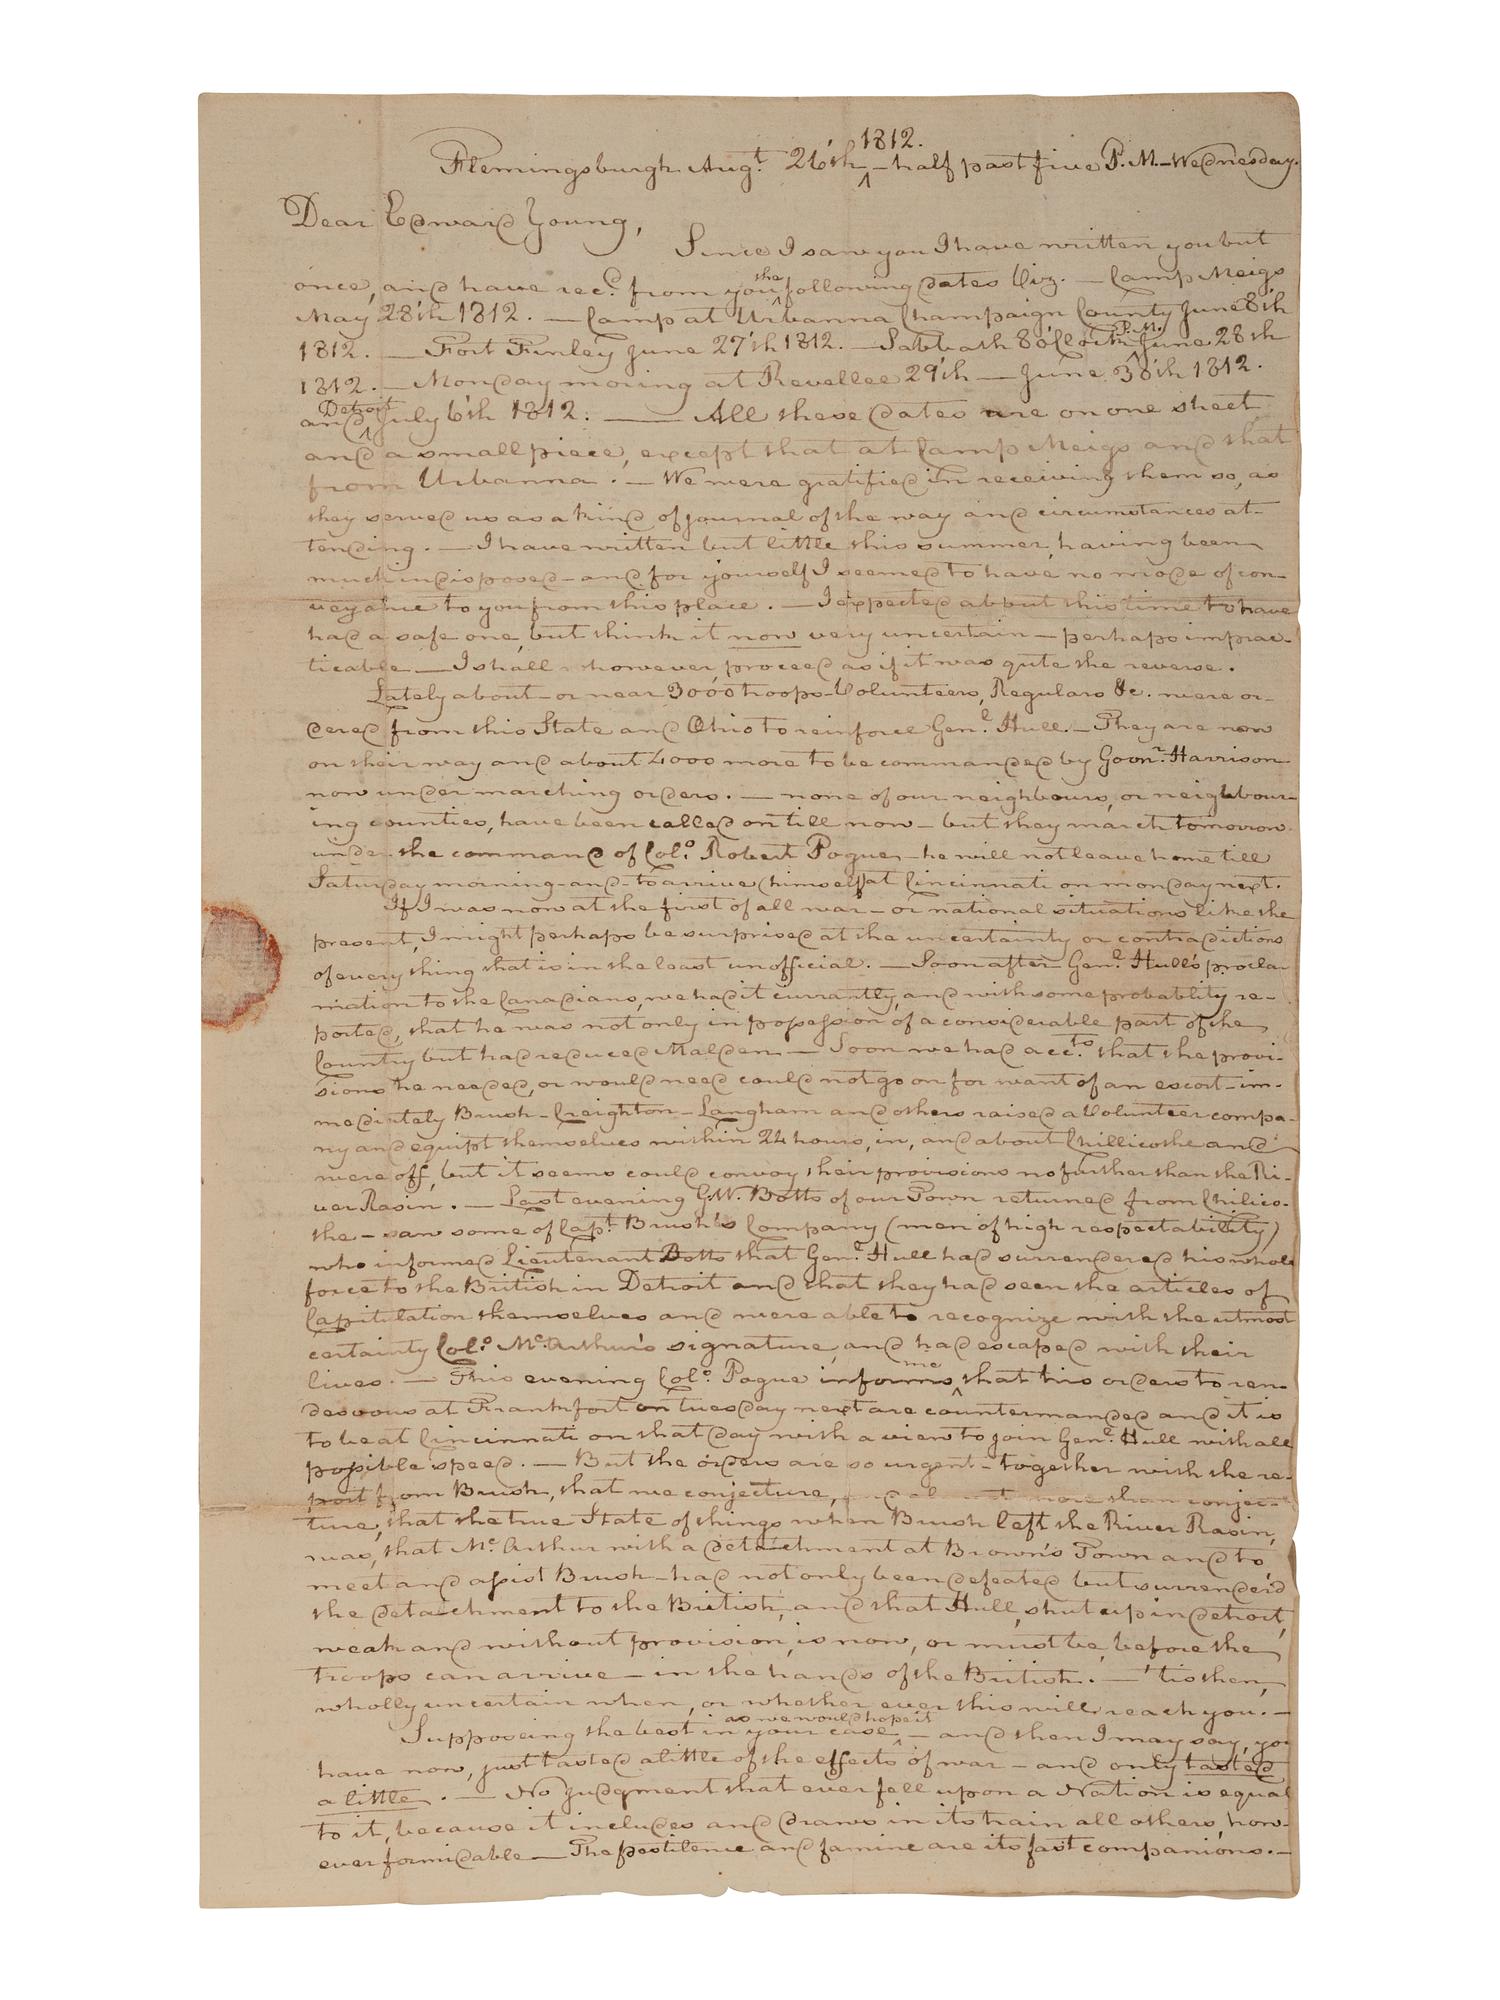 Flemingsburgh Augt. 26'th ^ 1812. - half past five P.M. - Wednesday.
Dear Edward Young,
Since I saw you I have written you but
once, and have recd. from you ^ the following dates Viz. — Camp Meigs
May 28'th 1812. — Camp at Urbanna Champaign County June 8'th
1812. — Fort Finley June 27'th 1812. — Sabbath 8 o'Clock ^ P.M. June 28th
1812. — Monday moring at Revellee 29'th — June 30'th 1812.
and ^ Detroit July 6'th 1812. — All these dates are on one sheet
and a small piece, except that at Camp Meigs and that
from Urbanna. — We were gratified in receiving them so, as
they served us as a kind of journal of the way and circumstances at-
tending. — I have written but little this summer, having been
much indisposed - and for yourself I seemed to have no mode of con-
veyance to you from this place. — I expected about this time to have
had a safe one, but think it now very uncertain — perhaps imprac-
ticable — I shall however, proceed as if it was qute the reverse.
Lately about - or near 3000 troops - Volunteers, Regulars &c. were or-
dered from this State and Ohio to reinforce Genl. Hull. — They are now
on their way and about 4000 more to be commanded by Govnr. Harrison
now under marching orders. — none of our neighbours, or neighbour-
ing counties, have been called on till now - but they march tomorrow
under the command of Colo. Robert Pogue - he will not leave home till
Saturday morning - and - to arrive (himself) at Cincinnati on monday next.
If I was now at the first of all war - or national situations like the
present, I might perhaps be surprised at the uncertainty or contradictions
of every thing that is in the least unofficial. — Soon after Genl. Hull's procla-
mation to the Canadians, we had it currantly, and with some probablity re-
ported, that he was not only in possession of a considerable part of the
Country but had reduced Malden — Soon we had accts. that the provi-
sions he needed, or would need could not go on for want of an escort - im-
mediately Brush - Creighton - Langham and others raised a Volunteer compa-
ny and equipt themselves within 24 hours, in, and about Chillicothe and
were off, but it seems could convoy their provisions no further than the Ri-
ver Rasin. — Last evening G.W. Botts of our Town returned from Chilico-
the - saw some of Capt. Brush's Company (men of high respectability)
who informed Lieutenant Botts that Genl. Hull had surrendered his whole
force to the British in Detroit and that they had seen the articles of
Capitulation themselves and were able to recognize with the utmost
certainty Colo. Mc.Arthur's signature, and had escaped with their
lives. — This evening Colo. Pogue informs ^ me that his orders to ren-
desvous at Frankfort on tuesday next are countermanded and it is
to be at Cincinnati on that day with a view to join Genl. Hull with all
possible speed. — But the orders are so urgent - together with the re-
port from Brush, that we conjecture, more than conjec-
ture, that the true State of things when Brush left the River Rasin,
was, that Mc.Arthur with a detachment at Brown's Town and to
meet and assist Brush - had not only been defeated but surrender'd
the detachment to the British, and that Hull, shut up in detroit,
weak and without provision, is now, or must be, before the
troops can arrive - in the hands of the British. — 'tis then,
wholly uncertain when, or whether ever this will reach you. —
Supposeing the best in your case ^ as we would hope it — and then I may say, you
have now, just tasted a little of the effects of war - and only tasted
a little. — No judgment that ever fell upon a Nation is equal
to it, because it includes and draws in its train all others, how-
ever formidable — The pestilence and famine are its fast companions. —